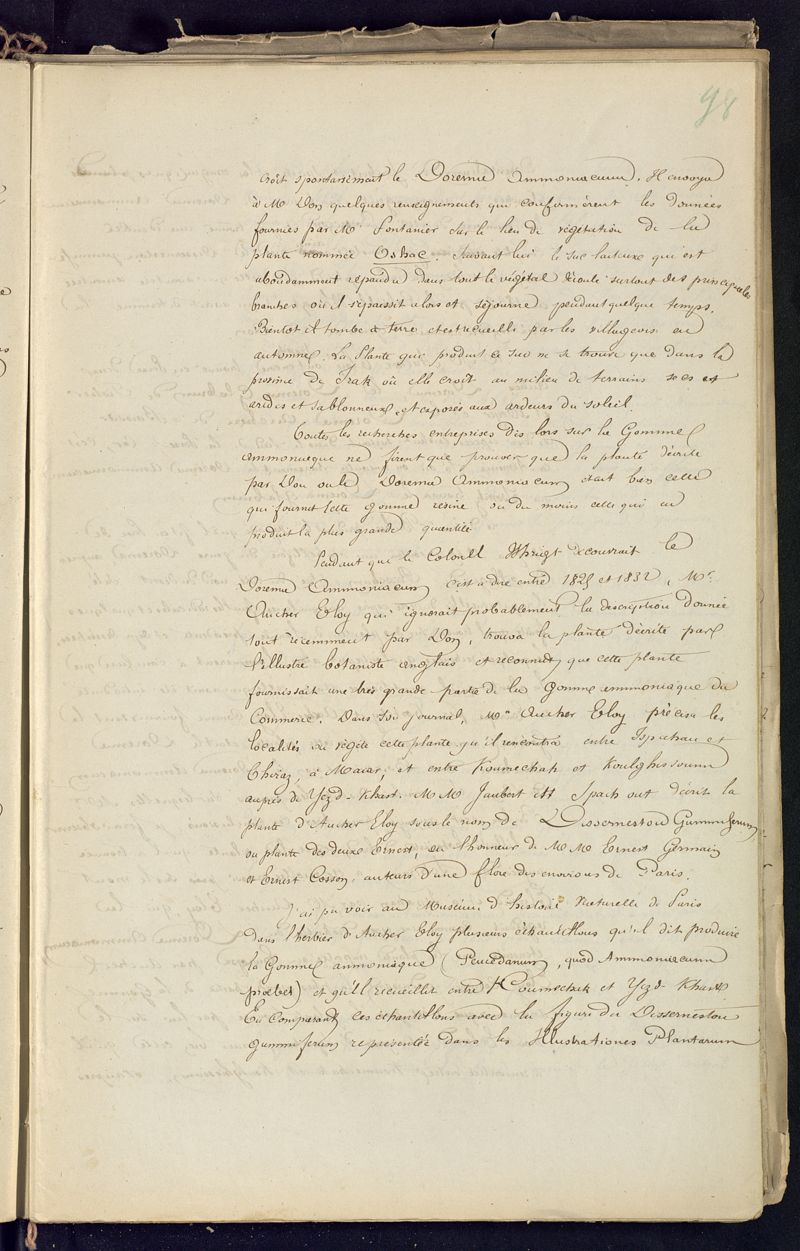 98
croît spontanément le Dorema Ammoniacum. Il envoya
à Mr Don quelques renseignements qui confirmèrent les données
fournies par Mr Fontanier sur le lieu de végétation de la
plante nommée Oshac. Suivant lui le suc laiteux qui est
abondamment repandu dans tout le végétal découle surtout des principales
branches où il s'épaissit alors et séjourne pendant quelque temps.
Bientot il tombe à terre et est recueilli par les villageois en
automne. La Plante qui produit ce suc ne se trouve que dans la
province de Irak où elle croît au milieu de terrains secs et
arides et sablonneux, et exposés aux ardeurs du soleil.
Toutes les recherches entreprises dès lors sur la Gomme
ammoniaque ne firent que prouver que la plante décrite
par Don ou le Dorema Ammoniacum était bien celle
qui fournit cette gomme resine ou du moins celle qui en
produit la plus grande quantité
Pendant que le Colonel Whrigt découvrait le
Dorema Ammoniacum c'est à dire entre 1825 et 1832, Mr
Aucher Eloy qui ignorait probablement la description donnée
tout récemment par Don, trouva la plante décrite par
l'illustre botaniste anglais et reconnut que cette plante
fournissait une très grande partie de la gomme ammoniaque du
Commerce. Dans son journal, Mr Aucher Eloy précisa les
localités où végète cette plante qu'il rencontra entre Ispahan et
Chiraz, à Maiar, et entre Koumechah et Koulghissoum
auprès de Yezd-Khast. MM Jaubert et Spach ont décrit la
plante d'Aucher Eloy sous le nom de Disserneston Gummiferum
ou plante des deux Ernest, en l'honneur de MM Ernest Germain
et Ernest Cosson, auteurs d'une flore des environs de Paris.
J'ai pu voir au Muséum d'histoire Naturelle de Paris
dans l'herbier d'Aucher Eloy plusieurs échantillons qu'il dit produire
la Gomme ammoniaque (Peucedanum, quod Ammoniacum
præbet) et qu'il recueillit entre Koumechak et Yezd-Khast
En comparant ces échantillons avec la figure du Disserneston
gummiferum représentée dans les Illustrationes Plantarum